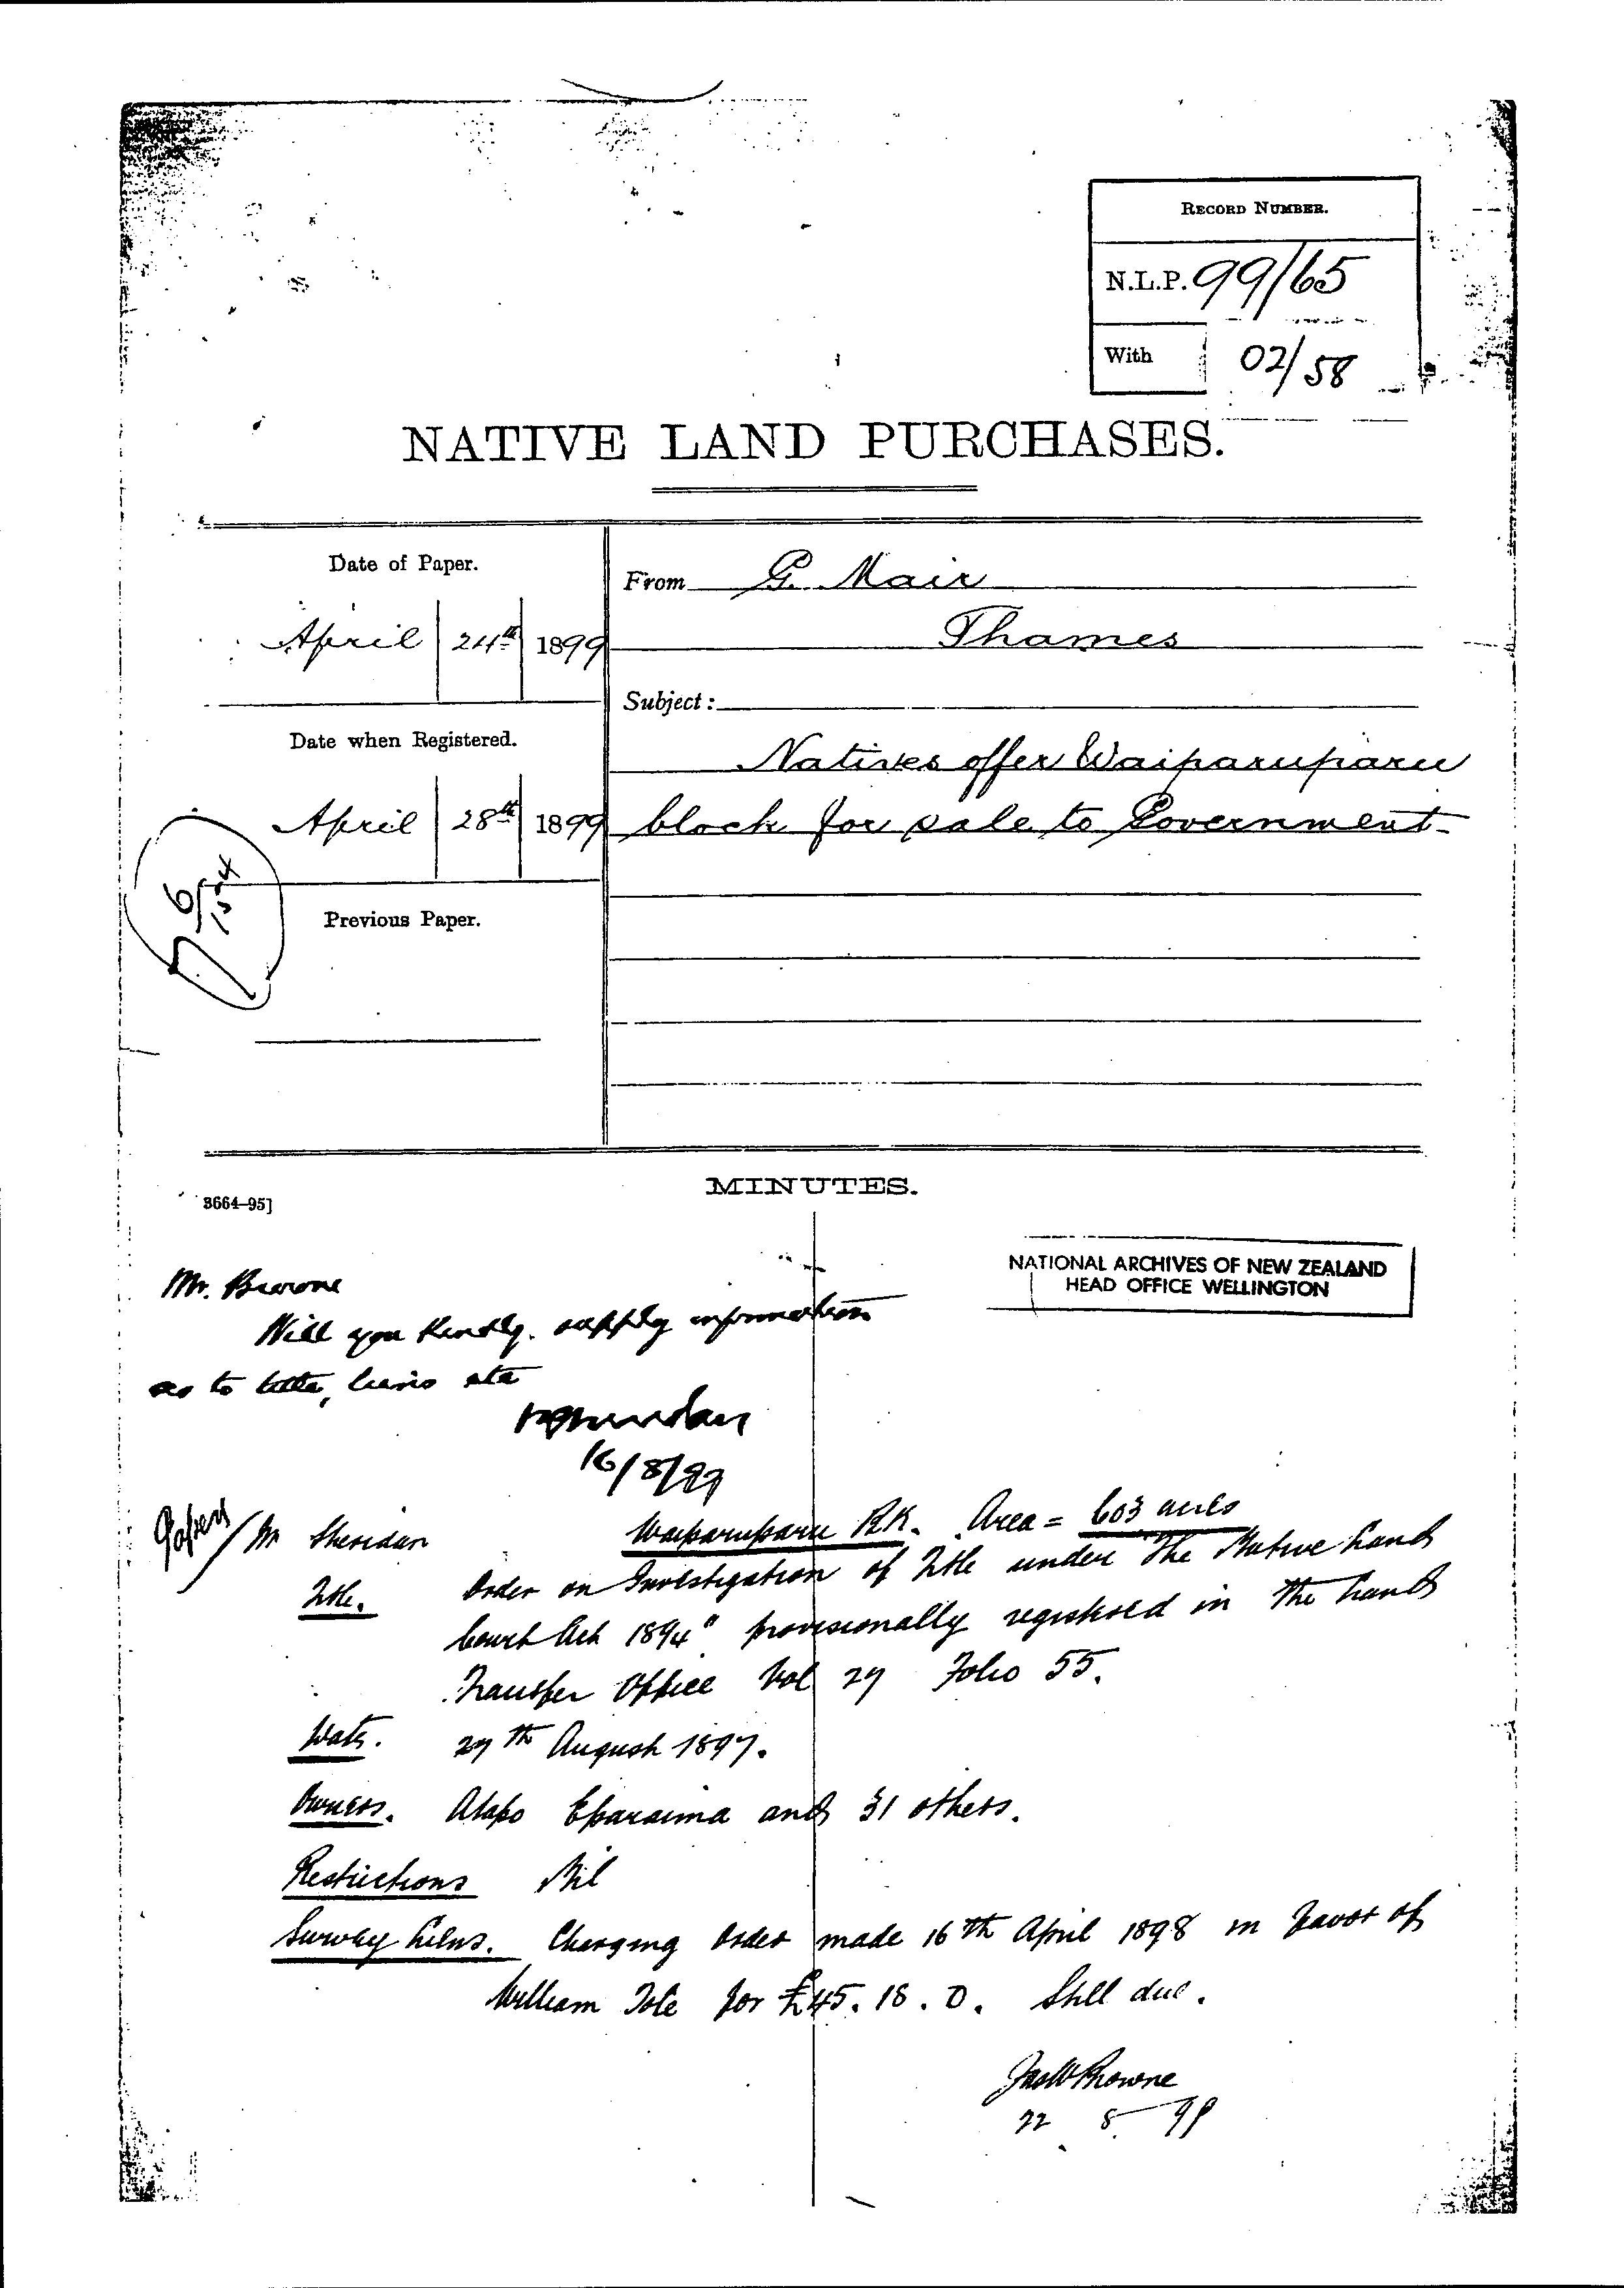 RECORD NUMBER.
N.L.P. 99/65
With 02/58
NATIVE LAND PURCHASES.
Date of Paper.
April 24th 1899
Date when Registered.
April 28th 1899
Previous Paper.
From G. Mair
Thames
Subject:
Natives offer Waiparuparu
block for sale to Government
MINUTES.
3664–95]
NATIONAL ARCHIVES OF NEW ZEALAND
HEAD OFFICE WELLINGTON
Mr. Browne
Will you kindly supply information
as to title, liens etc
16/8/99
Mr Sheridan
Waiparuparu Area = 603 acres
Title. Order on Investigation of Title under "The Native Land
Court Act 1894" provisionally registered in the Land
Transfer Office Vol 27 Folio 55.
Date. 27th August 1897.
Owners. Atapo Eparaima and 31 others.
Restrictions Nil
Survey Liens. Charging Order made 16th April 1898 in favor of
William Tole for £45. 18. 0. Still due.
Jas W Browne
22 8 99